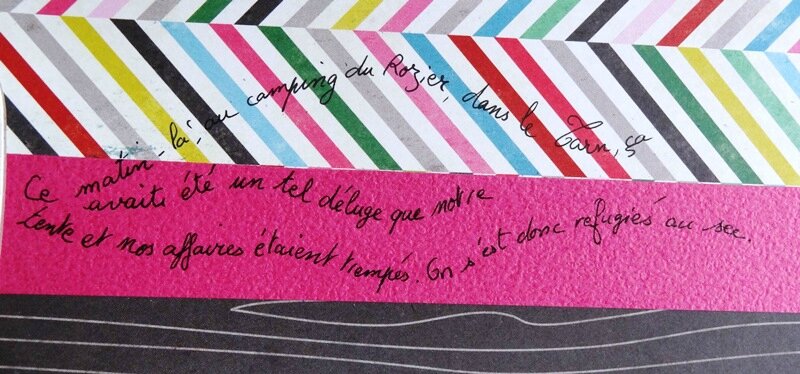 Ce matin-là, au camping du Rozier, dans le Tarn, ça
avait été un tel déluge que notre
tente et nos affaires étaient trempés. On s'est donc refugiés au sec.